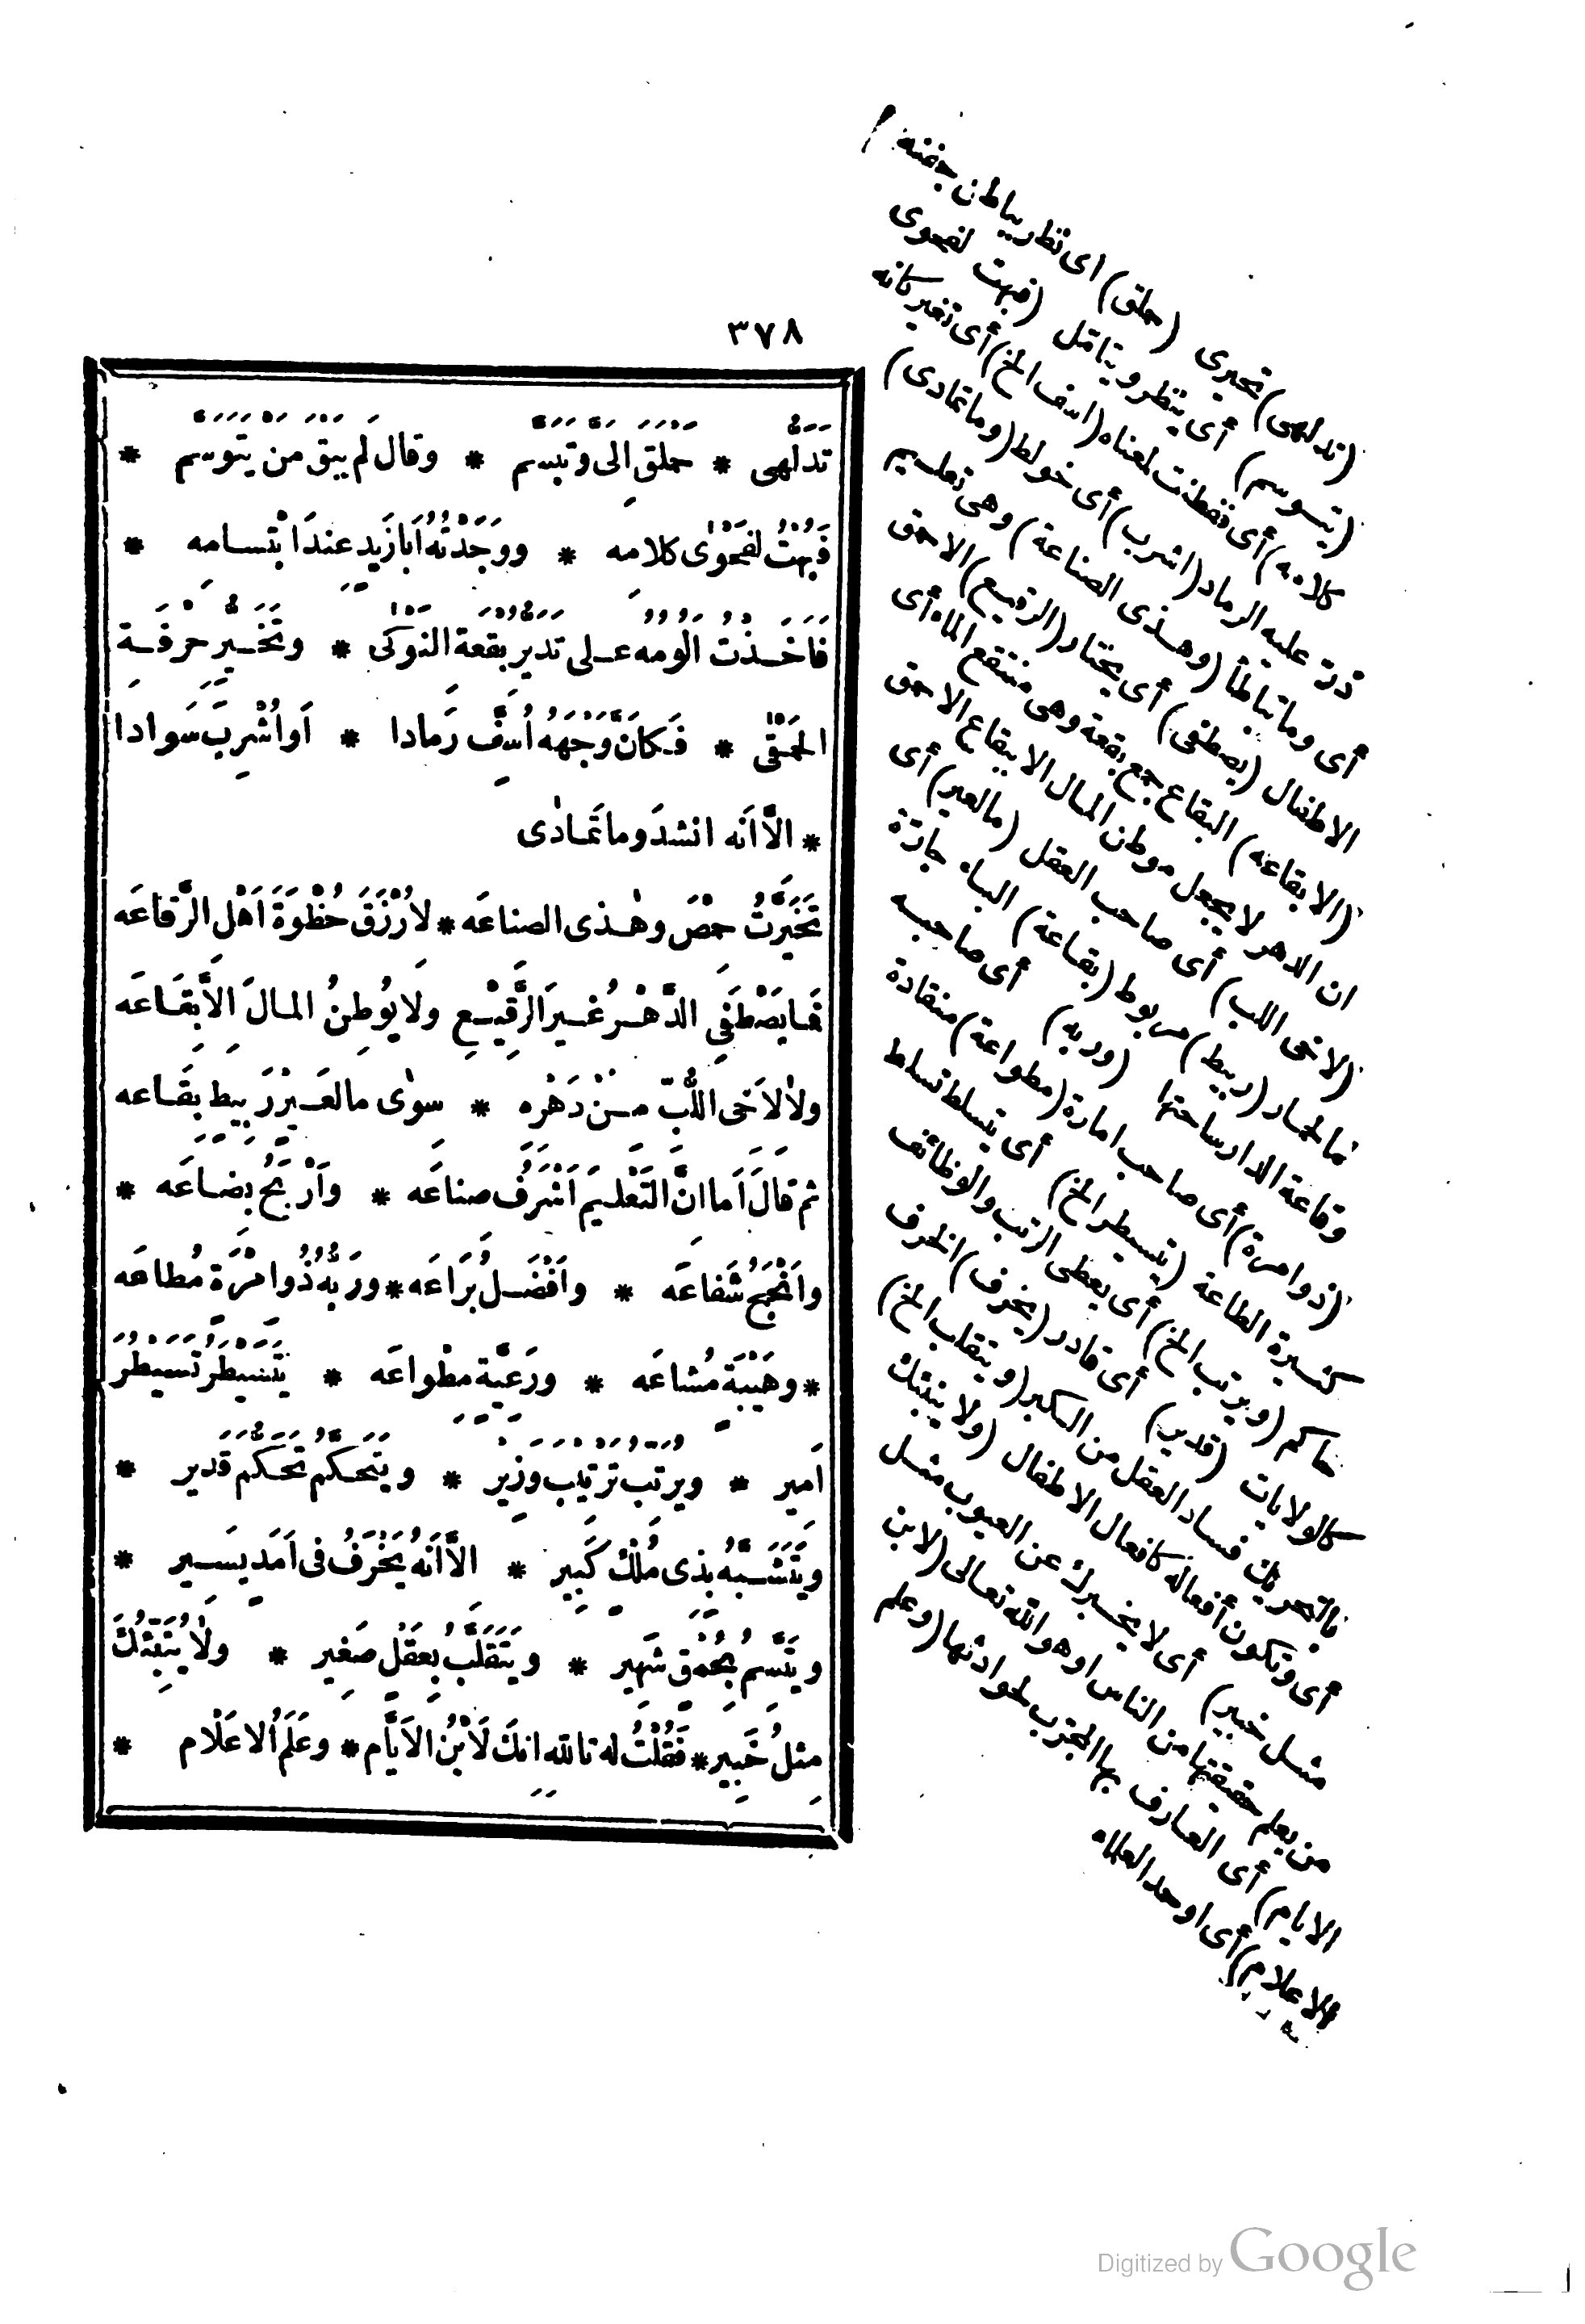 ٣٧٨
تَدَلُّهى * حَمْلَقَ اِلىَّ وَتَبَسَّم * وقال لَم يَبْقَ مَن يَتَوَسَّم *
فَبُهْتُ لفَحْوٰى كلامِه * ووَجَدْتُهُ اَبازَيدٍ عِندَ ابْتِسامِه *
فَاَخَذْتُ اَلُومُهُ عَلى تَدَيُّرِ بُقْعَةِ النَوْكٰى * وتَخَيُّرِ حِرْفَةِ
الحَمْقٰى * فَكاَنَّ وَجْهَهُ اُسِفَّ رَمادا * اَو اُشْرِبَ سَوادا
* الاَّ اَنَه انشدَ وما تَمادٰى
تَخَيَّرْتُ حِمْصَ وهٰذى الصناعَه * لِاُرْزَقَ حُظْوَةَ اَهْلِ الرَّقاعَه
فَما يَصْطَفى الدَّهْرُ غَيرَ الرَّقِيْعِ ولا يُوطِنُ المالَ اِلاَّ بِقاعَه
ولا لاَخى اللُّبِّ مِنْ دَهْرِهِ * سوٰى ما لعَيْرٍ رَبيطٍ بِقَاعه
ثم قالَ اَما اِنَّ التَعْليمَ اَشْرَفُ صناعَه * واَرْبَحُ بِضاعَه *
واَنْجَحُ شَفاعَه * واَفْضَلُ بُرَاعَه * ورَبُّهُ ذُو اِمْرَةٍ مُطاعَه
* وهَيْبَةٍ مُشاعَه * ورَعِيَّةٍ مِطْواعَه * يَتَسَيْطَرُ تَسَيْطُرَ
اَمير * ويُرَتِّبُ تَرْتِيْبَ وَزِير * ويَتَحَكَّمُ تَحَكُّمَ قَدير *
ويَتَشَبَّهُ بِذِى مُلْكٍ كَبِير * الاَّ اَنَهُ يَخْرَفُ فى اَمَدٍ يَسِير *
ويَتَّسِمُ بِحُمْقٍ شَهِير * ويَتَقَلَّبُ بِعَقْلٍ صَغِير * ولا يُنَبِّئُكَ
مِثلُ خَبِير * فَقُلْتُ له تاللهِ اِنكَ لَابْنُ الاَيَّام * وعَلَمُ الاعْلَام *
(تدلهى) تحيرى (حملق) اى نظر بباطن جفنه
(يتوسم) أى ينظر ويتأمل (فبهت لفحوى
كلامه) أى تفطنت لمعناه (اسف الخ) أى تغير كأنه
ذر عليه الرماد (اشرب) أى خولط (وما تمادى)
أى وما تباطأ (وهذى الصناعة) وهى تعليم
الاطفال (يصطفى) أى يختار (الرقيع) الاحمق
(الا بقاعه) البقاع جمع بقعة وهى منتقع الماء أى
ان الدهر لا يجعل موطن المال الا بقاع الاحمق
(لاخى اللب) أى صاحب العقل (ما لعير) أى
ما لحمار (ربيط) مربوط (بقاعة) الباء جارة
وقاعة الدار ساحتها (وربه) أى صاحبه
(ذو امرة) أى صاحب امارة (مطواعة) منقادة
كثيرة الطاعة (يتسيطر الخ) أى يتسلط تسلط
حاكم (ويرتب الخ) أى يعطى الرتب والوظائف
كالولايات (قدير) أى قادر (يخرف) الخرف
بالتحريك فساد العقل من الكبر (ويتقلب الخ)
أى وتكون أفعاله كافعال الاطفال (ولا ينبئك
مثل خبير) أى لا يخبرك عن العيوب مثل
من يعلم حقيقتها من الناس او هو الله تعالى (لابن
الايام) أى العارف بها المجرب لحوادثها (وعلم
الاعلام) أى اوحد العلماء
Digitized by Google